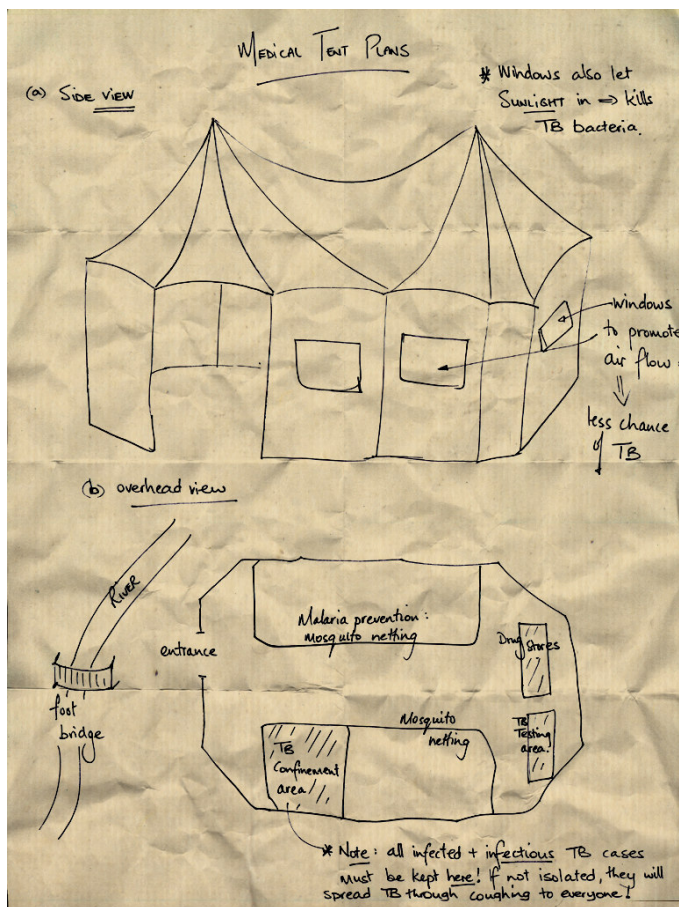 MEDICAL TENT PLANS
(a) SIDE VIEW
* Windows also let
SUNLIGHT in ⇒ kills
TB bacteria.
windows
to promote
air flow
⇓
less chance
of TB
(b) overhead view
RIVER
foot
bridge
entrance
Malaria prevention:
Mosquito netting
Drug Stores
Mosquito
netting
TB
Testing
area.
TB
Confinement
area
* Note: all infected + infectious TB cases
must be kept here! If not isolated, they will
spread TB through coughing to everyone!